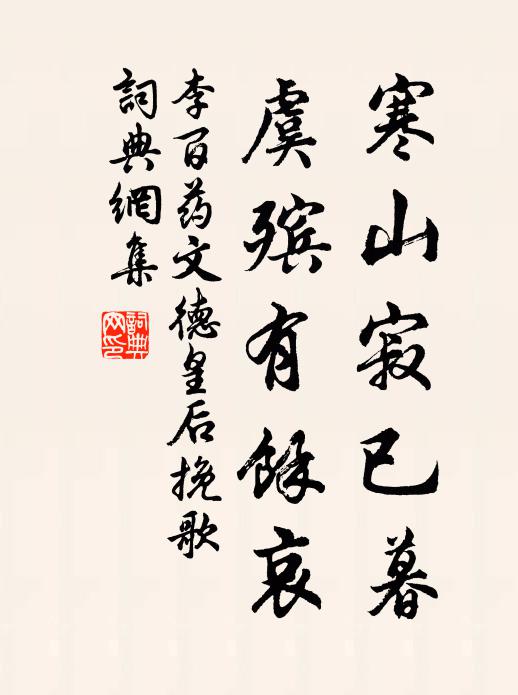 寒山寂已暮
虞殡有餘哀
李百药文德皇后挽歌
詞典網集
詞典
网印